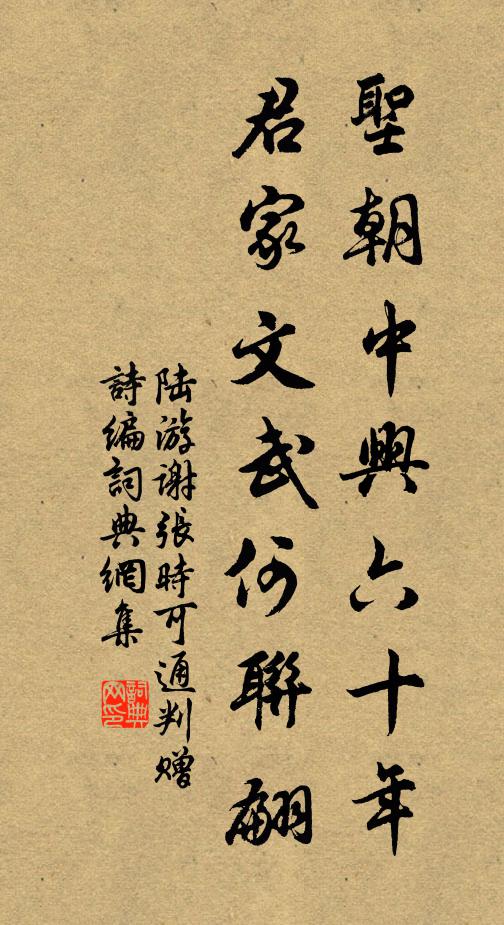 聖朝中興六十年
君家文武何聯翩
陸游谢張時可通判赠
詩编詞典網集
詞典
网印